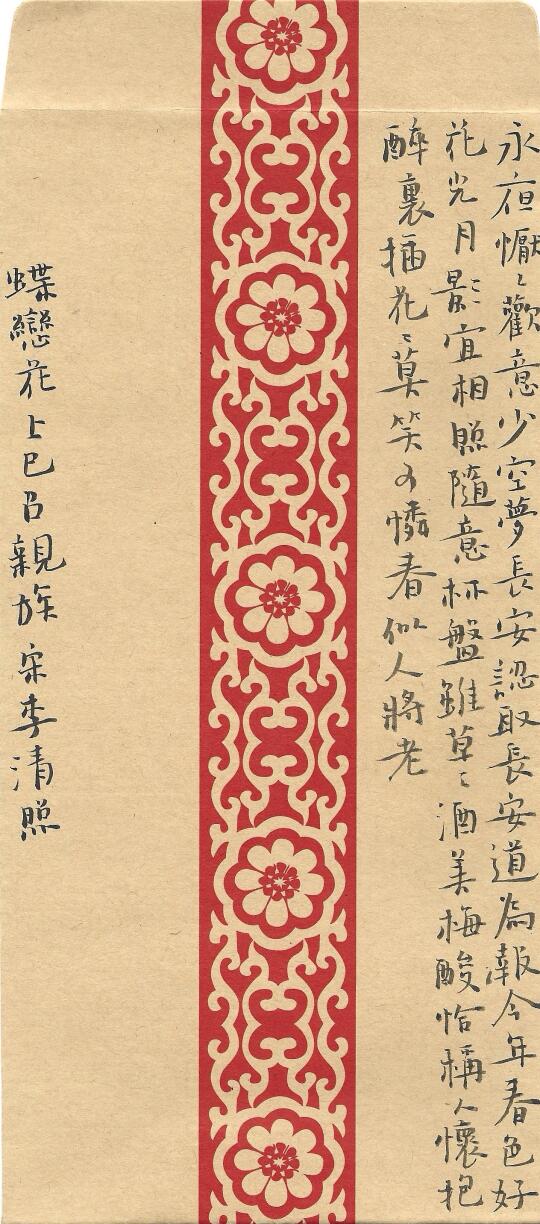 永夜懨〻歡意少空夢長安認取長安道為報今年春色好
花光月影宜相照隨意杯盤雖草〻酒美梅酸恰稱人懷抱
醉裏插花〻莫笑可憐春似人將老
蝶戀花上巳召親族 宋李清照